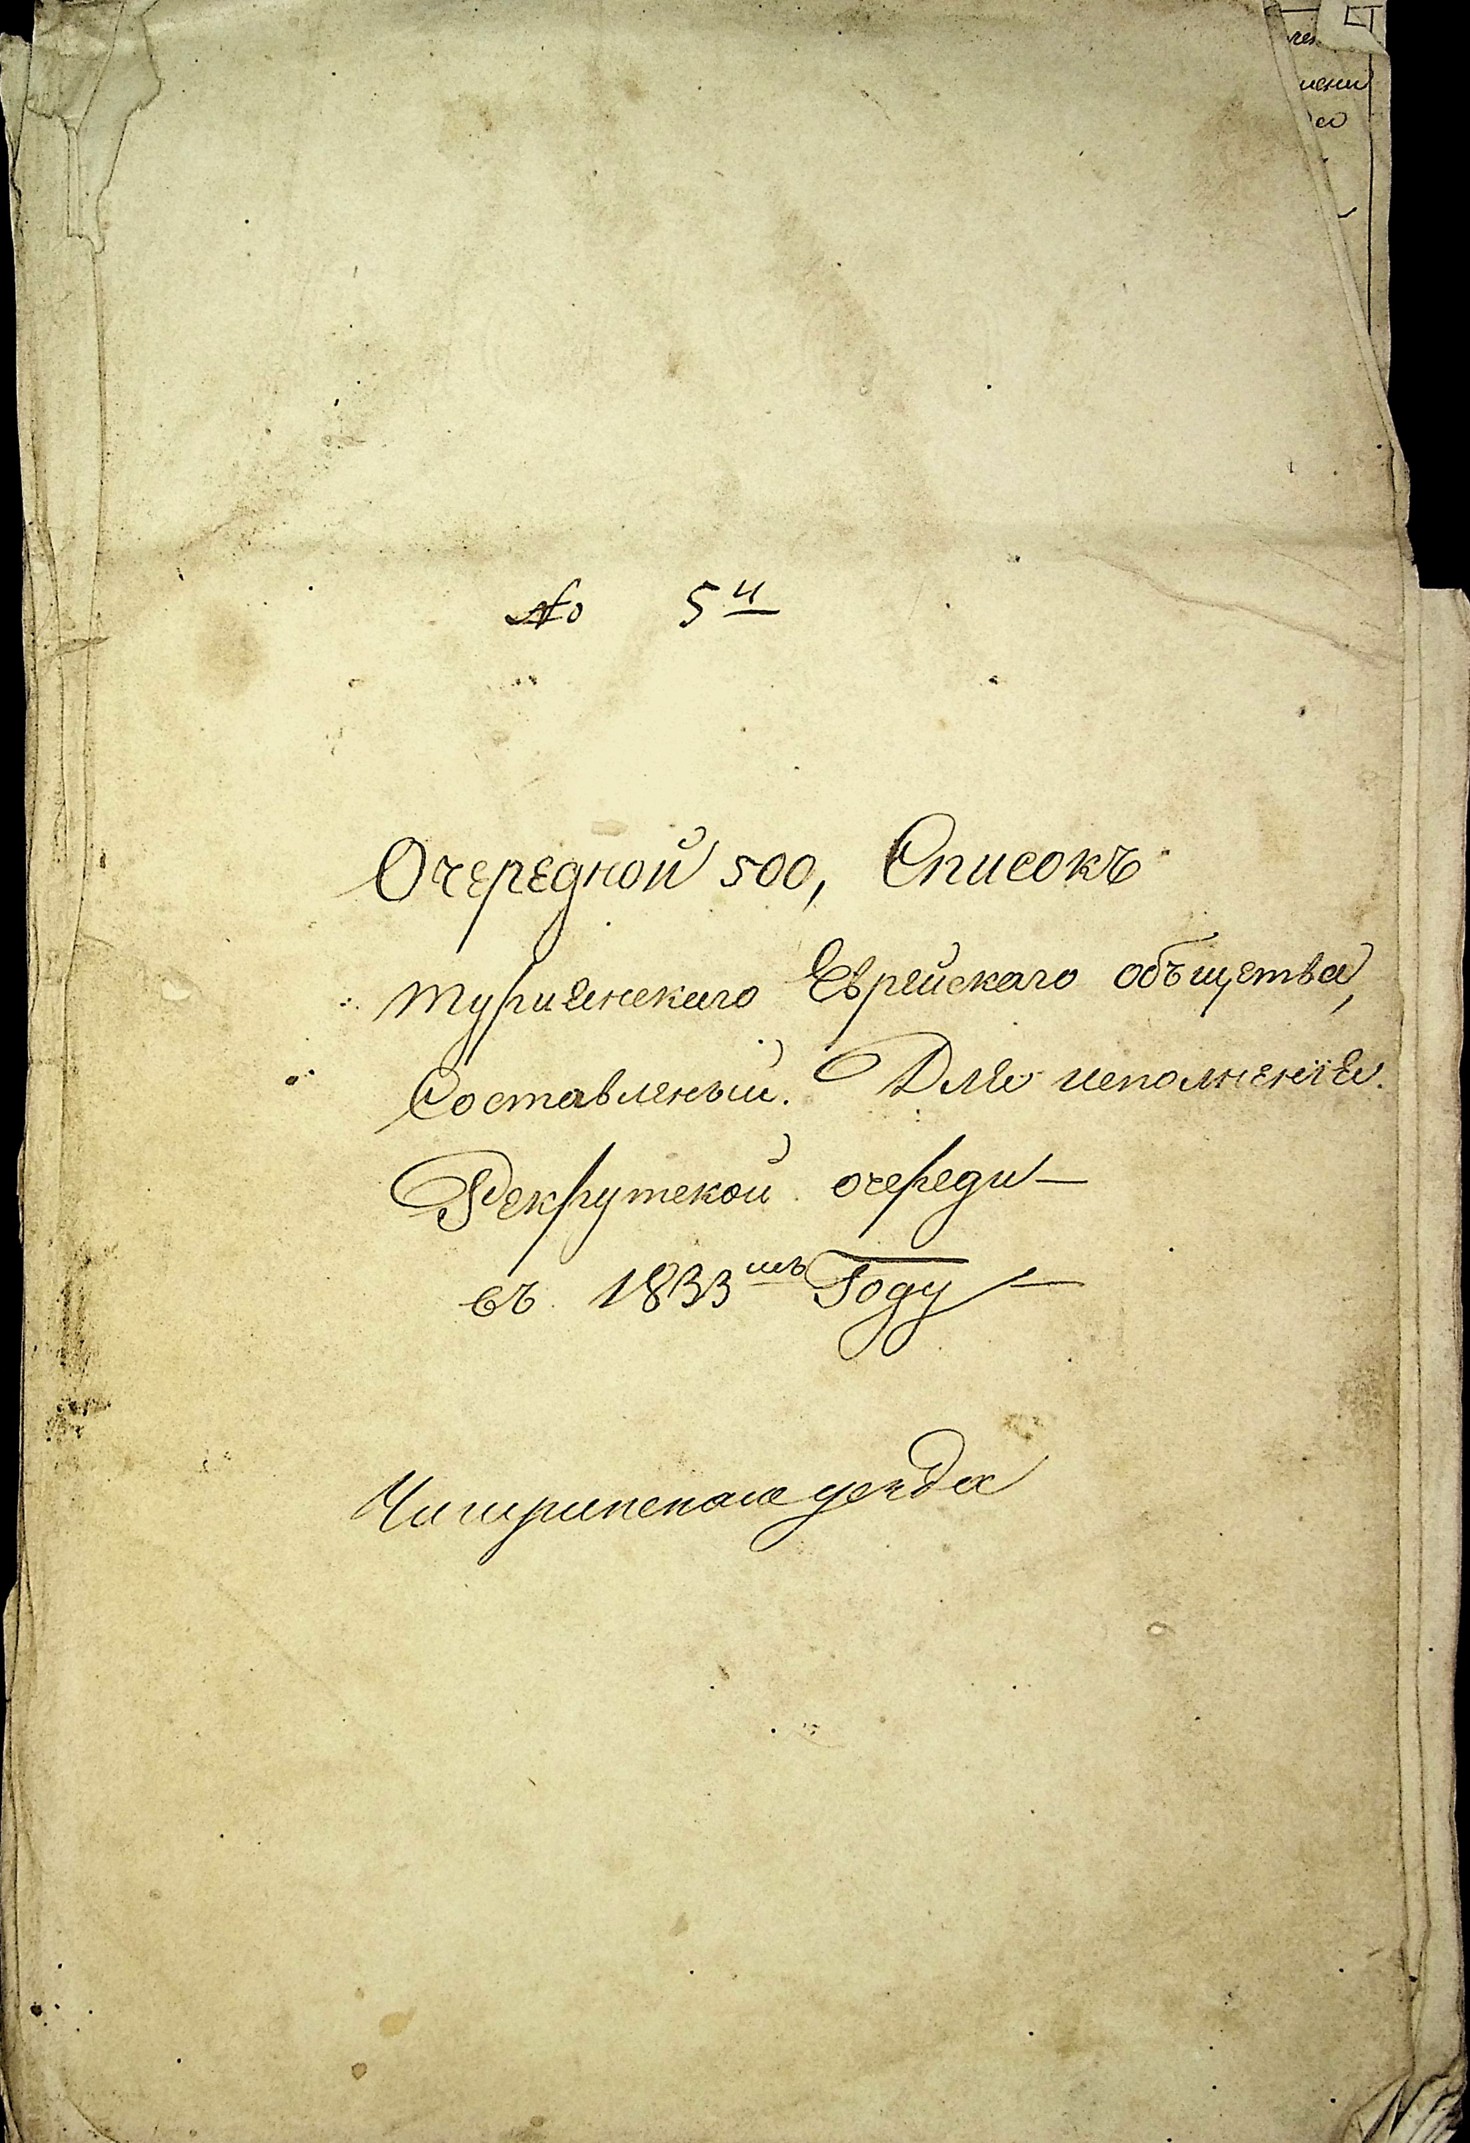 № 5й
Очередной 500, Списокъ
Турианскаго Еврейскаго объщества,
Составленый. Для исполненія
Рекрутской очереди —
въ 1833мъ Году —
Чигиринскаго уезда